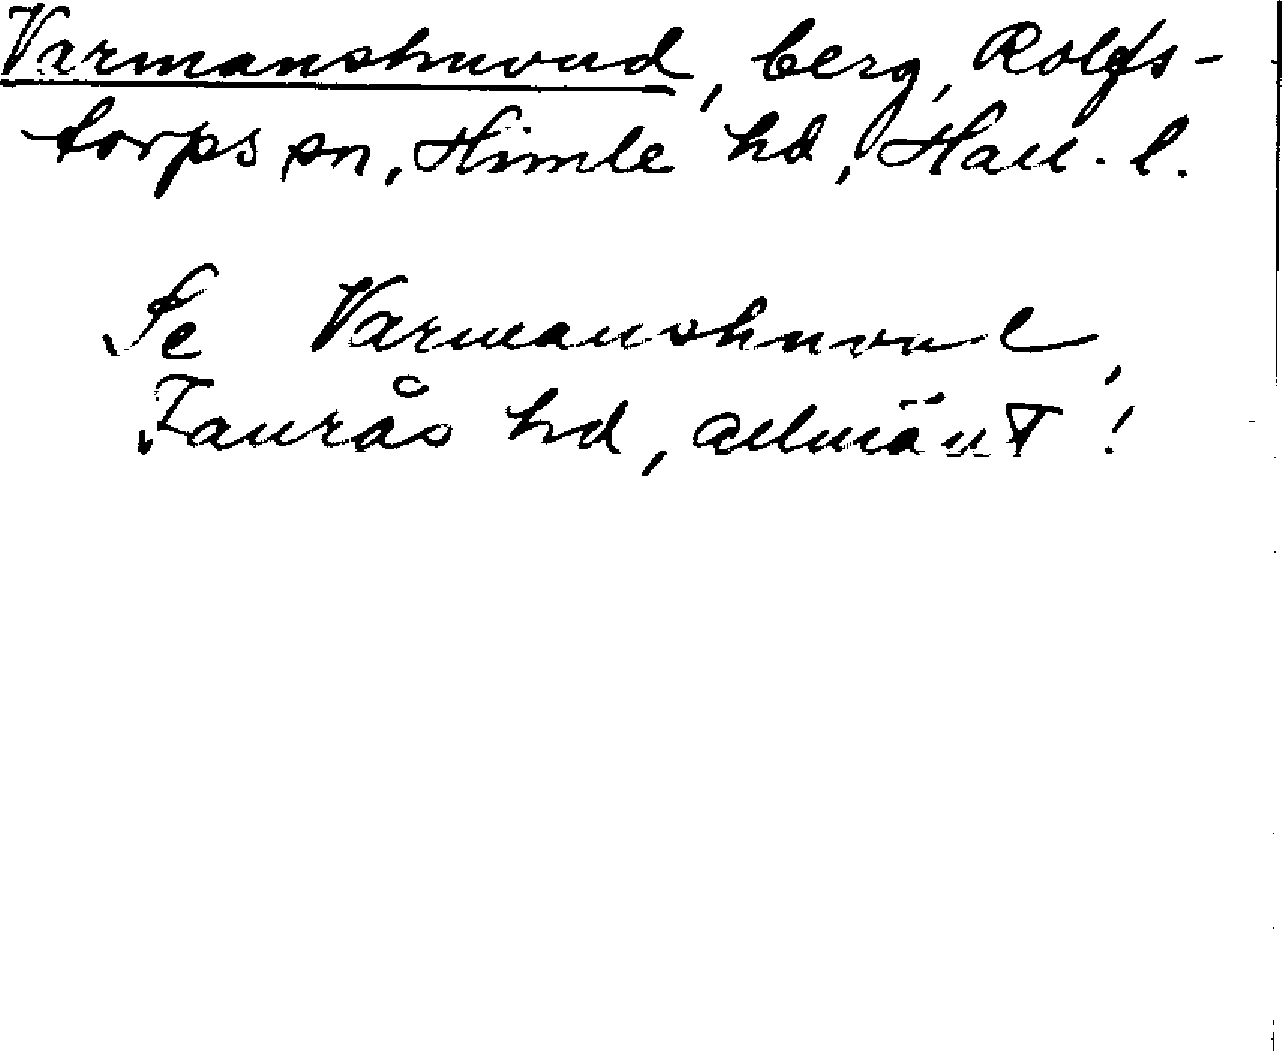 Varmanshuvud, berg, Rolfs-
torps sn, Himle hd, Hall. l.
Se Varmanshuvud,
Faurås hd, allmänt!